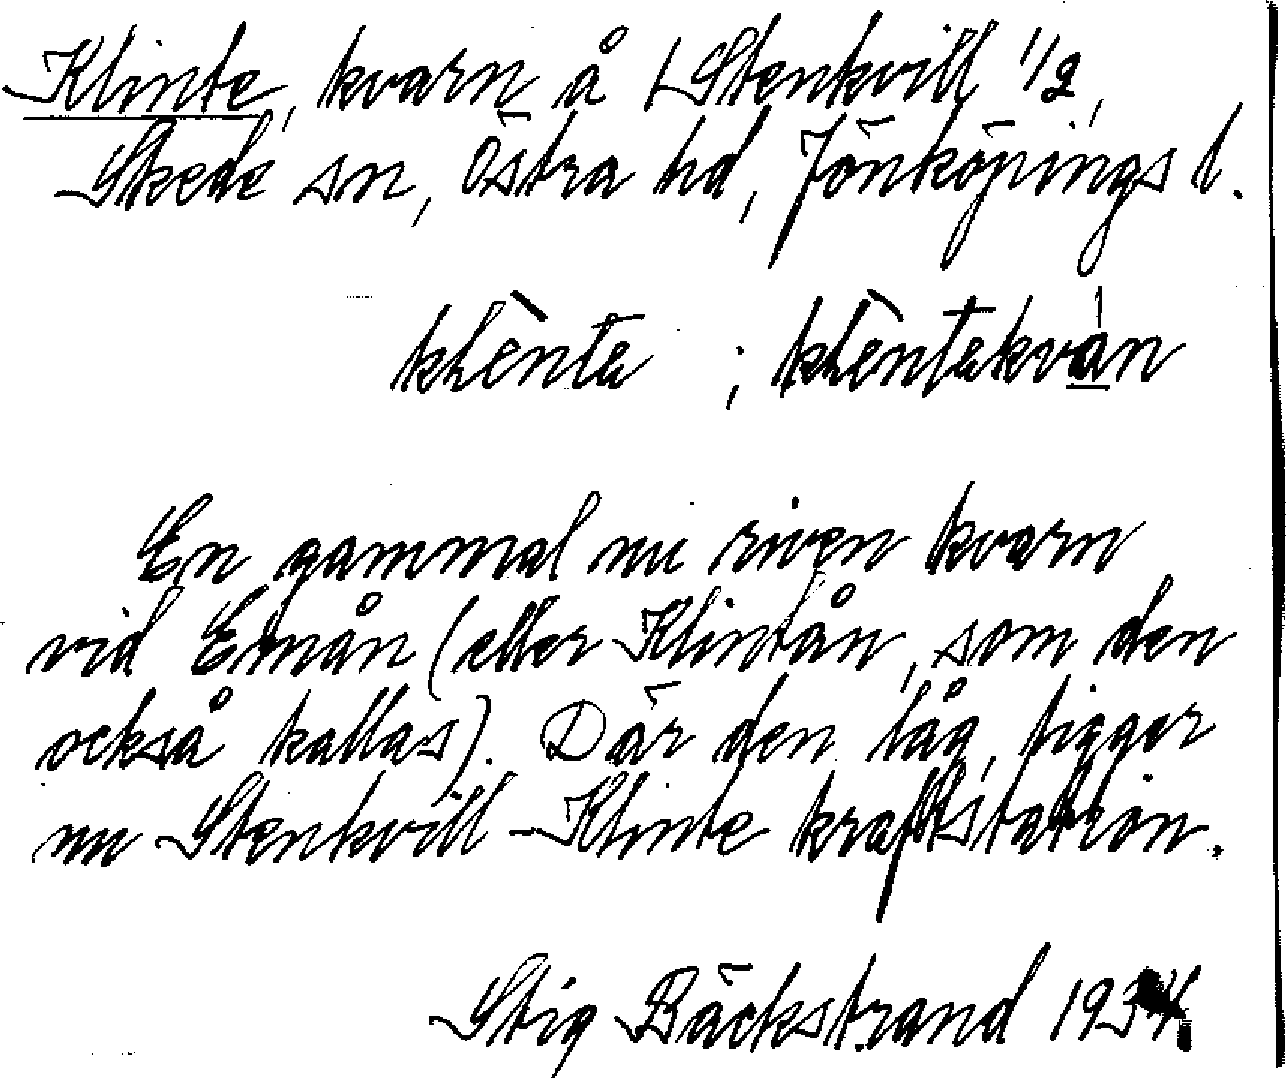 Klinte, kvarn å Stenkvill 1/2,
Skede sn, Östra hd, Jönköpings l.
klènta ; klèntakván
En gammal nu riven kvarn
vid Emån (eller Klintån, som den
också kallas). Där den låg, ligger
nu Stenkvill-Klinte kraftstation.
Stig Bäckstrand